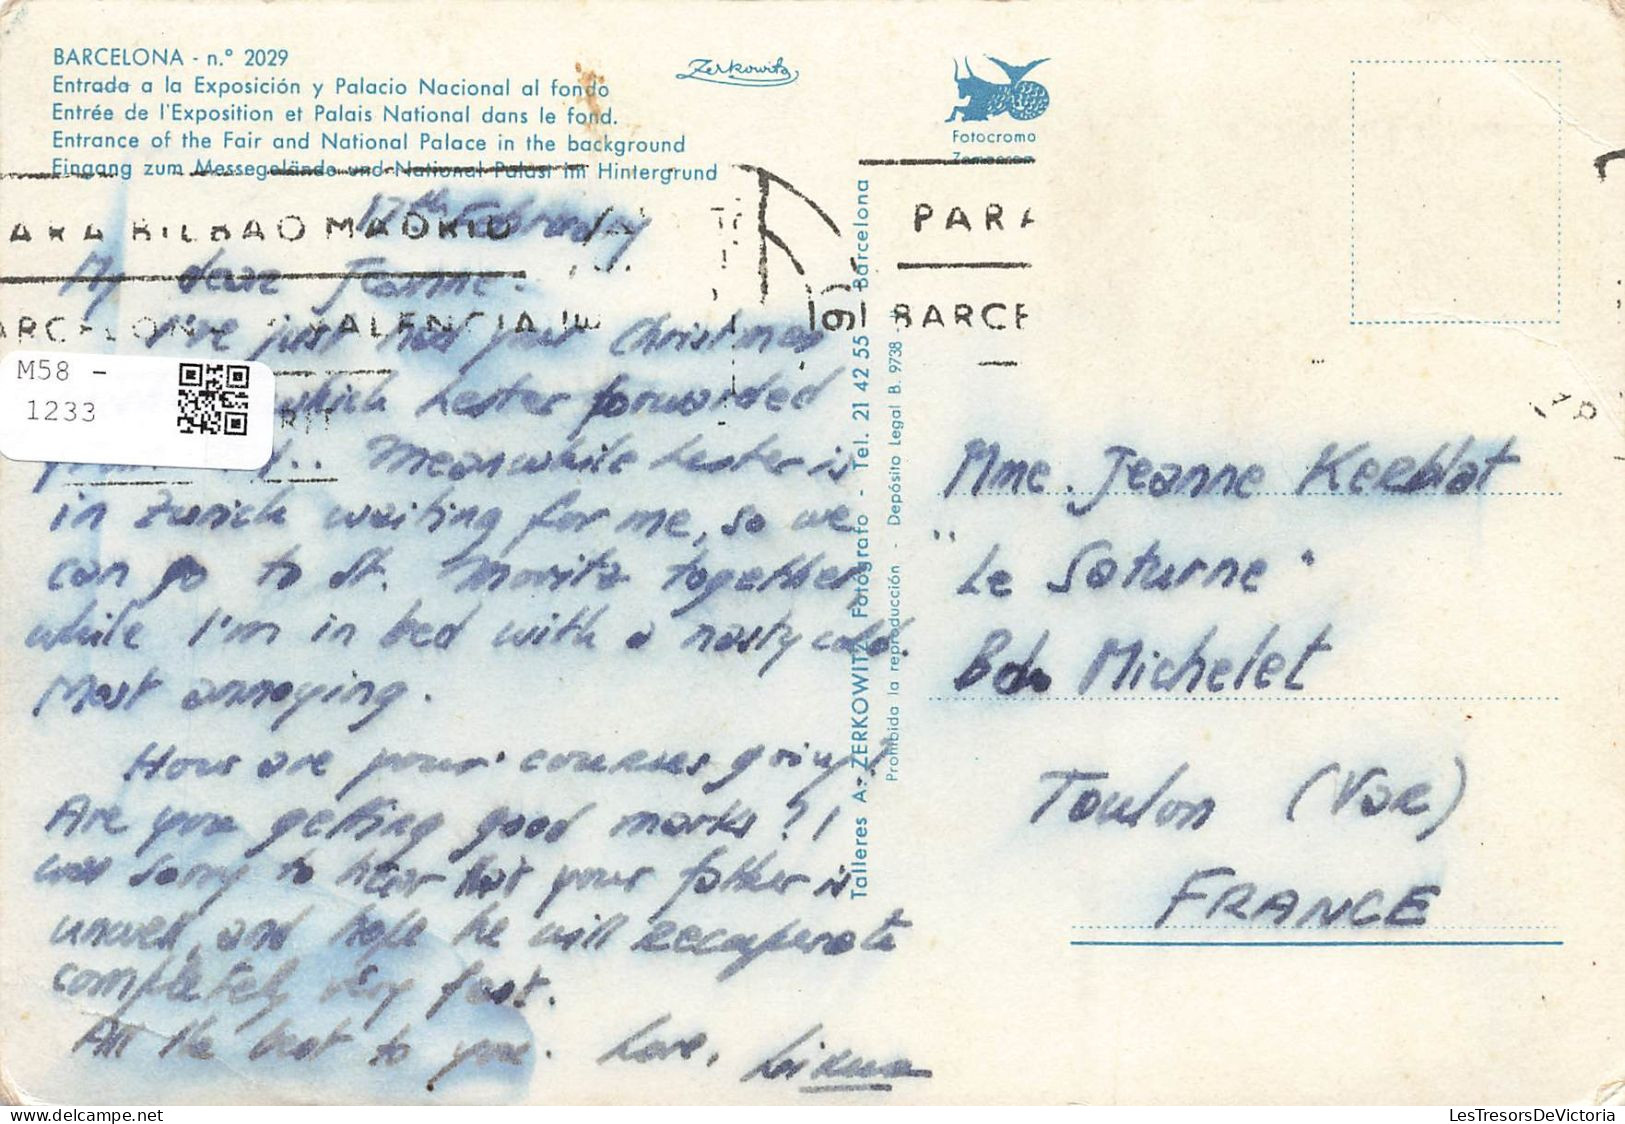 BARCELONA - n.º 2029
Entrada a la Exposición y Palacio Nacional al fondo
Entrée de l'Exposition et Palais National dans le fond.
Entrance of the Fair and National Palace in the background
Eingang zum Messegelände und National Palast im Hintergrund
Zerkowitz
Fotocromo
PARA BILBAO MADRID
BARCELONA VALENCIA
PARA
BARCE
M58 -
1233
17th February
My dear Jeanne.
I've just had your Christmas
which Hester forwarded
from Meanwhile Hester is
in Zurich waiting for me, so we
can go to St. Moritz together,
while I'm in bed with a nasty cold.
Most annoying.
How are your courses going?
Are you getting good marks? I
was sorry to hear that your father is
unwell, and hope he will recuperate
completely very fast.
All the best to you. Love,
Talleres A. ZERKOWITZ Fotógrafo - Tel. 21 42 55 Barcelona
Prohibida la reproducción - Depósito Legal B. 9738 -
Mme. Jeanne
"Le Saturne"
Bd. Michelet
Toulon (Var)
FRANCE
LesTresorsDeVictoria